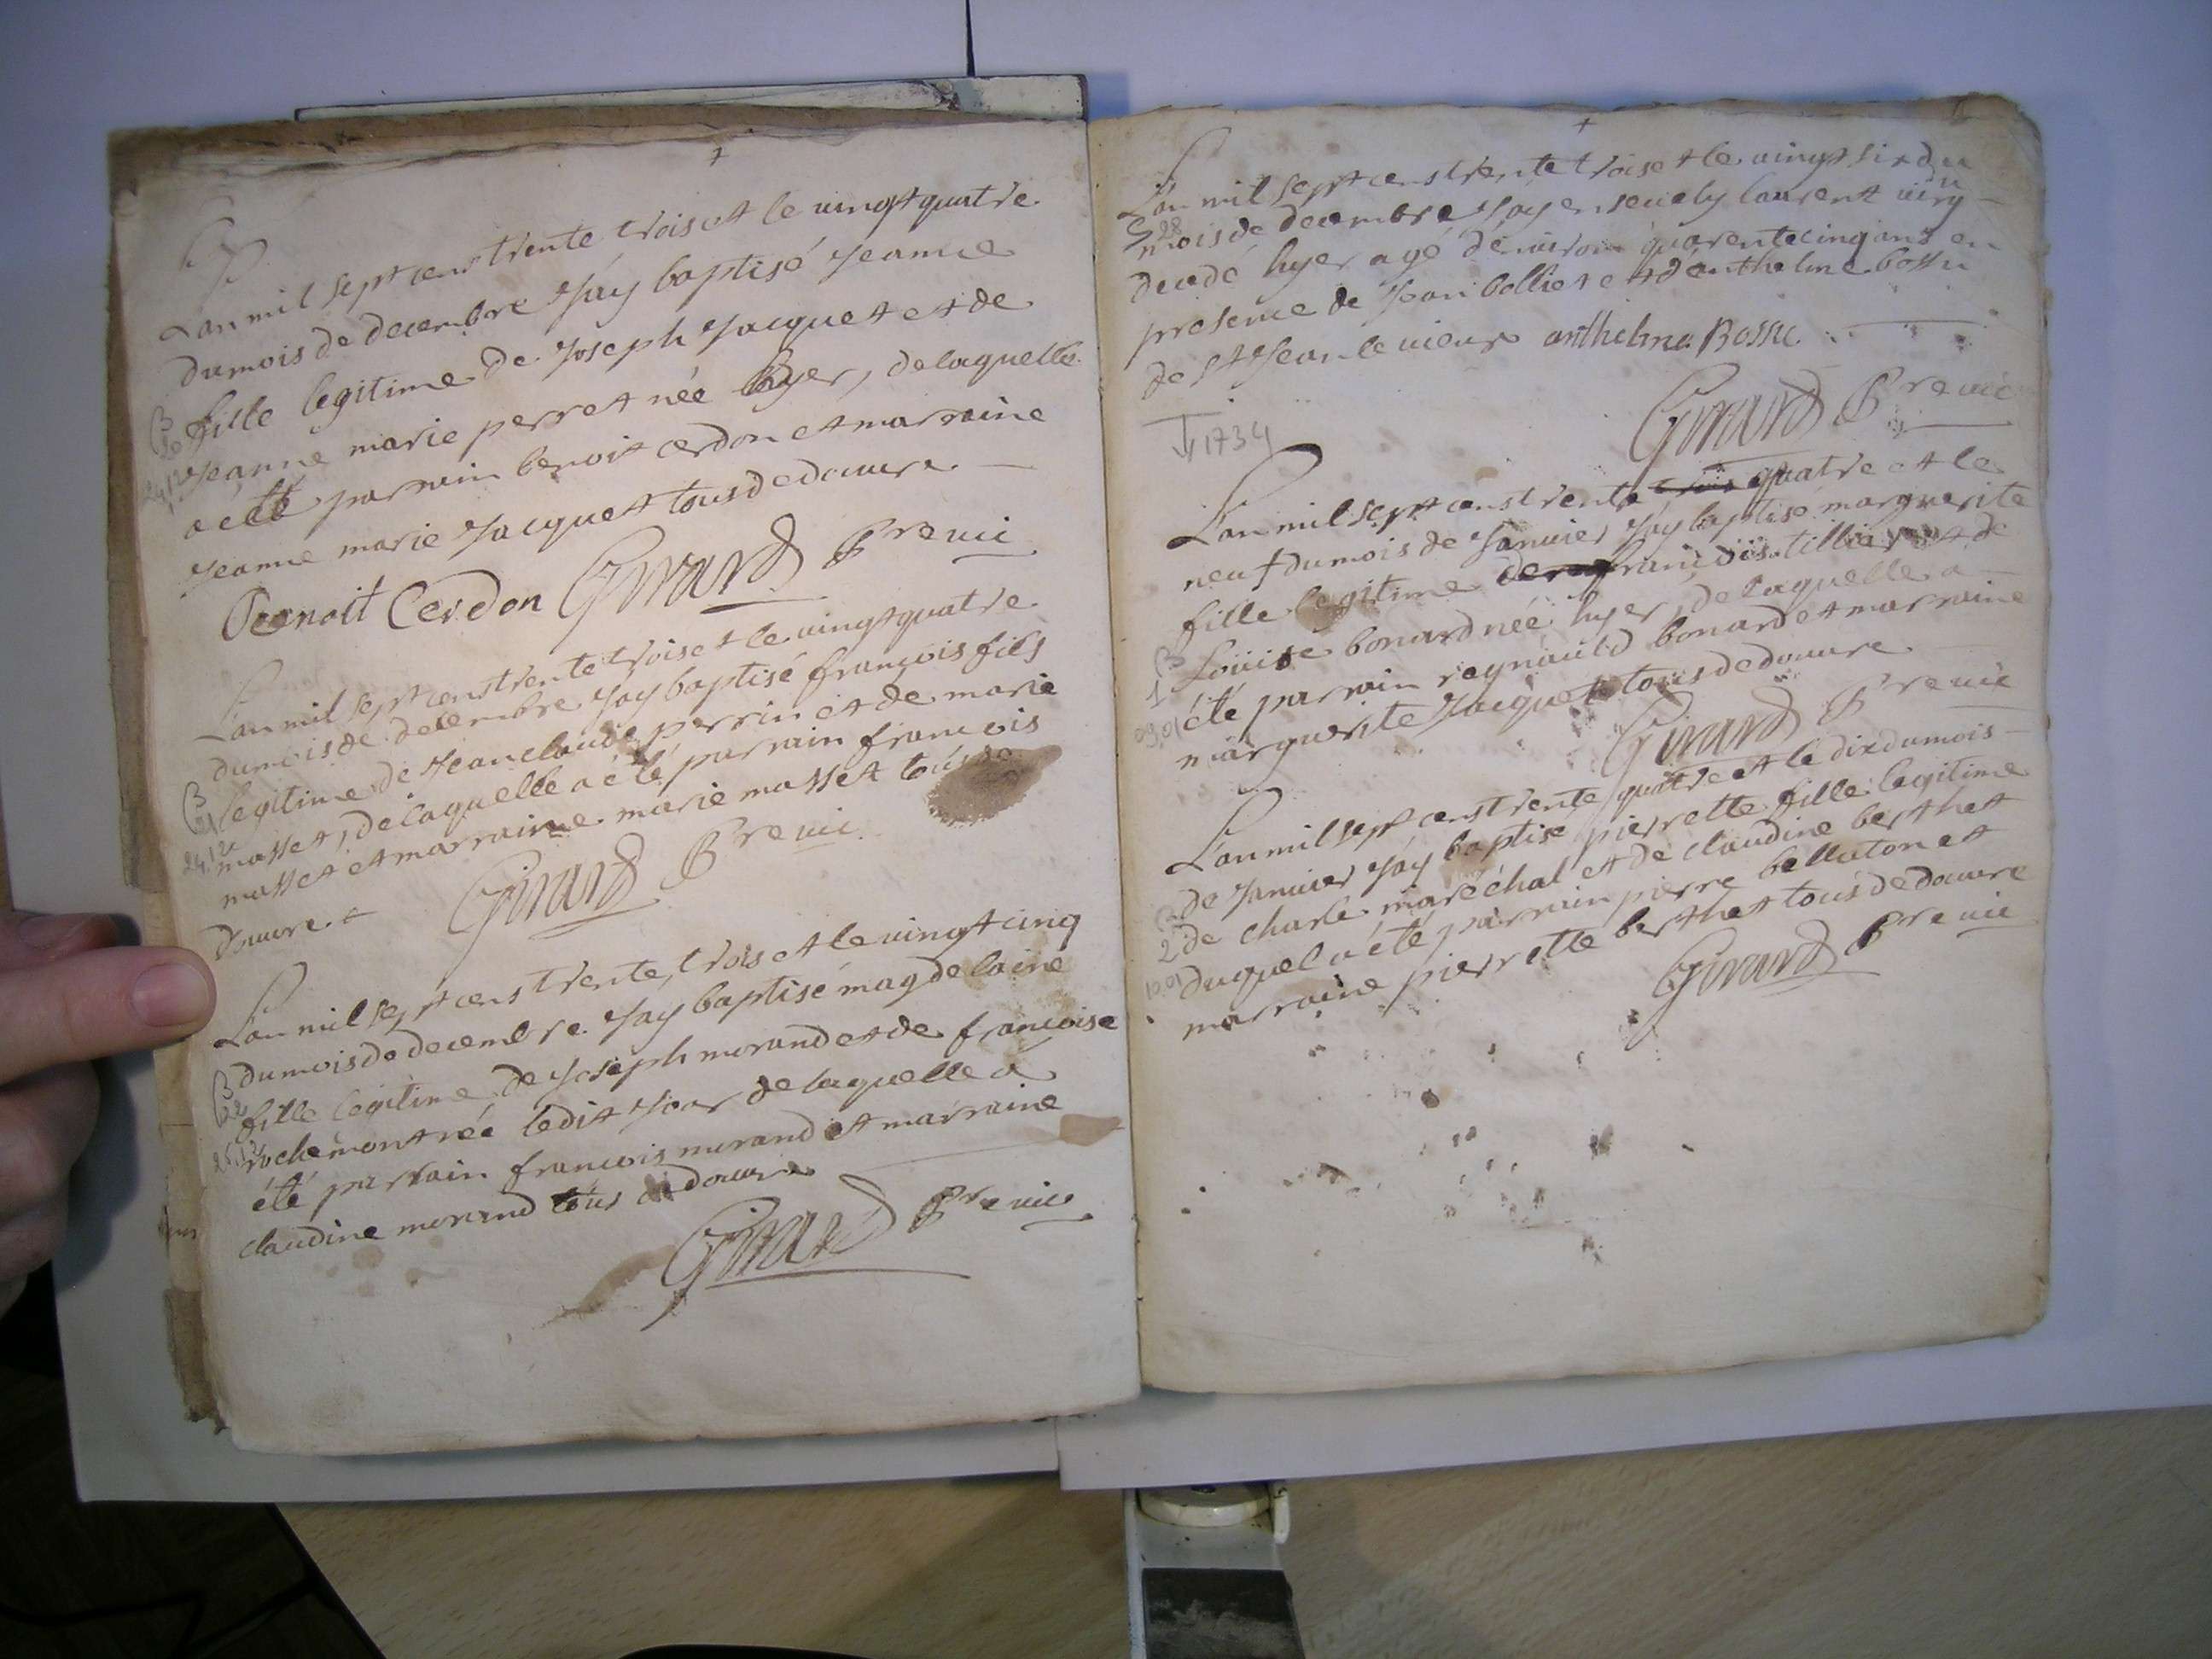 L'an mil sept cens trente trois et le vingt quatre
du mois de decembre j'ay baptisé jeanne
fille legitime de joseph jacquet et de
jeanne marie perret née hyer, de laquelle
a eté parrain benoit cerdon et marraine
jeanne marie jacquet tous de douvre
Benoit Cerdon Girard Pre vic
L'an mil sept cens trente trois et le vingt quatre
du mois de decembre j'ay baptisé françois fils
legitime de jean claude perrin et de marie
masset, de laquelle a eté parrain francois
masset et marraine marie masset tous de
douvre
Girard Pre vic
L'an mil sept cens trente trois et le vingt cinq
du mois de decembre j'ay baptisé magdelaine
fille legitime de joseph morand et de francoise
rochemont née ledit jour de laquelle a
été parrain francois morand et marraine
claudine morand tous de douvre
Girard Pre vic
L'an mil sept cens trente trois et le vingt six du
mois de decembre j'ay enseuely laurent
decedé hyer agé d'environ quarente cinq ans en
presence de jean bolliet et d'anthelme bossu
de St jean le vieux anthelme Bossu
Girard Pre vic
1734
L'an mil sept cens trente trois quatre et le
neuf du mois de janvier j'ay baptisé marguerite
fille legitime de françois tillier et de
Louise bonard née hyer, de laquelle a
été parrain reynauld bonard et marraine
marguerite jacquet tous de douvre
Girard Pre vic
L'an mil sept cens trente quatre et le dix du mois
de janvier j'ay baptisé pierrette fille legitime
de charle maréchal et de claudine berthet
duquel a été parrain pierre belluton et
marraine pierrette berthet tous de douvre
Girard Pre vic